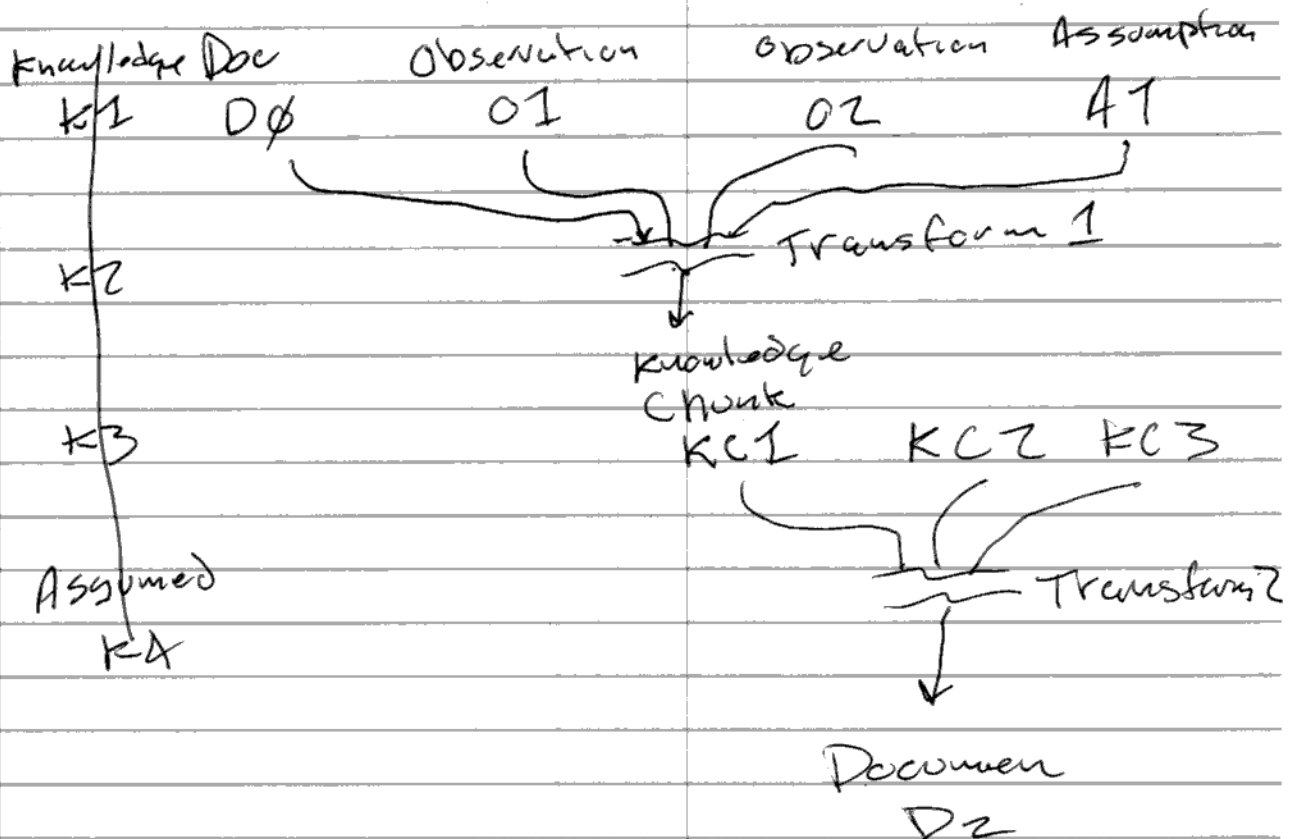 Knowledge Doc Observation Observation Assumption
K1 DØ O1 O2 A1
Transform 1
K2
Knowledge
Chunk
K3 KC1 KC2 KC3
Assumed Transform 2
K4
Documen
D2